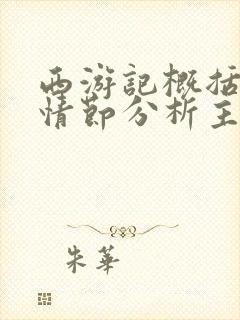 西游記概括
情節分析主
朱華